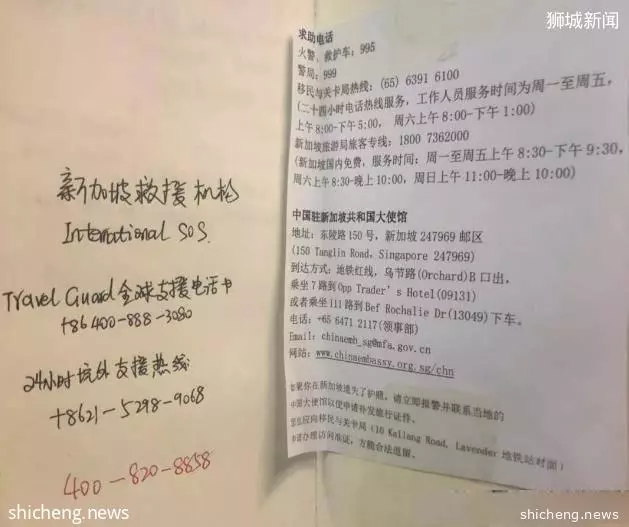 狮城新闻
新加坡救援机构
International SOS.
Travel Guard 全球支援电话卡
+86 400-888-3080
24小时境外支援热线
+8621-5298-9068
400-820-8858
求助电话
火警、救护车：995
警局：999
移民与关卡局热线：(65) 6391 6100
(二十四小时电话热线服务，工作人员服务时间为周一至周五，
上午 8:00-下午 5:00， 周六上午 8:00-下午 1:00)
新加坡旅游局旅客专线：1800 7362000
(新加坡国内免费，服务时间：周一至周五上午 8:30-下午 9:30，
周六上午 8:30-晚上 10:00，周日上午 11:00-晚上 10:00)
中国驻新加坡共和国大使馆
地址：东陵路 150 号，新加坡 247969 邮区
(150 Tanglin Road, Singapore 247969)
到达方式：地铁红线，乌节路(Orchard)B 口出，
乘坐 7 路到 Opp Trader's Hotel(09131)
或者乘坐 111 路到 Bef Rochalie Dr(13049)下车。
电话：+65 6471 2117(领事部)
Email: chinaemb_sg@mfa.gov.cn
网站：www.chinaembassy.org.sg/chn
如果你在新加坡遗失了护照，请立即报警并联系当地的
中国大使馆以便申请补发旅行证件。
您也应向移民与关卡局(10 Kallang Road, Lavender 地铁站对面)
申请办理访问准证，方能合法逗留。
shicheng.news
shicheng.news